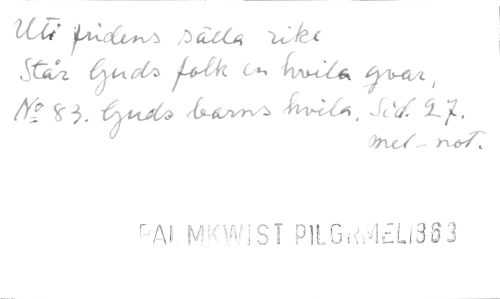 Uti fridens sälla rike
Står Guds folk en hvila qvar,
No 83. Guds barns hvila. Sid. 27.
mel-not.
PALMKWIST PILGRMEL1863